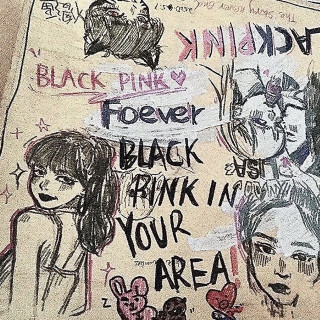 BLACKPINK
"BLACK PINK ♡
Foever
BLACK
PINK IN
YOUR
AREA!
LISA